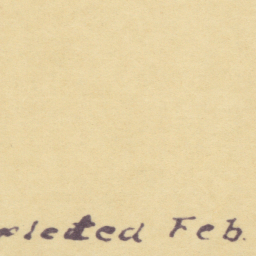 pleted Feb.